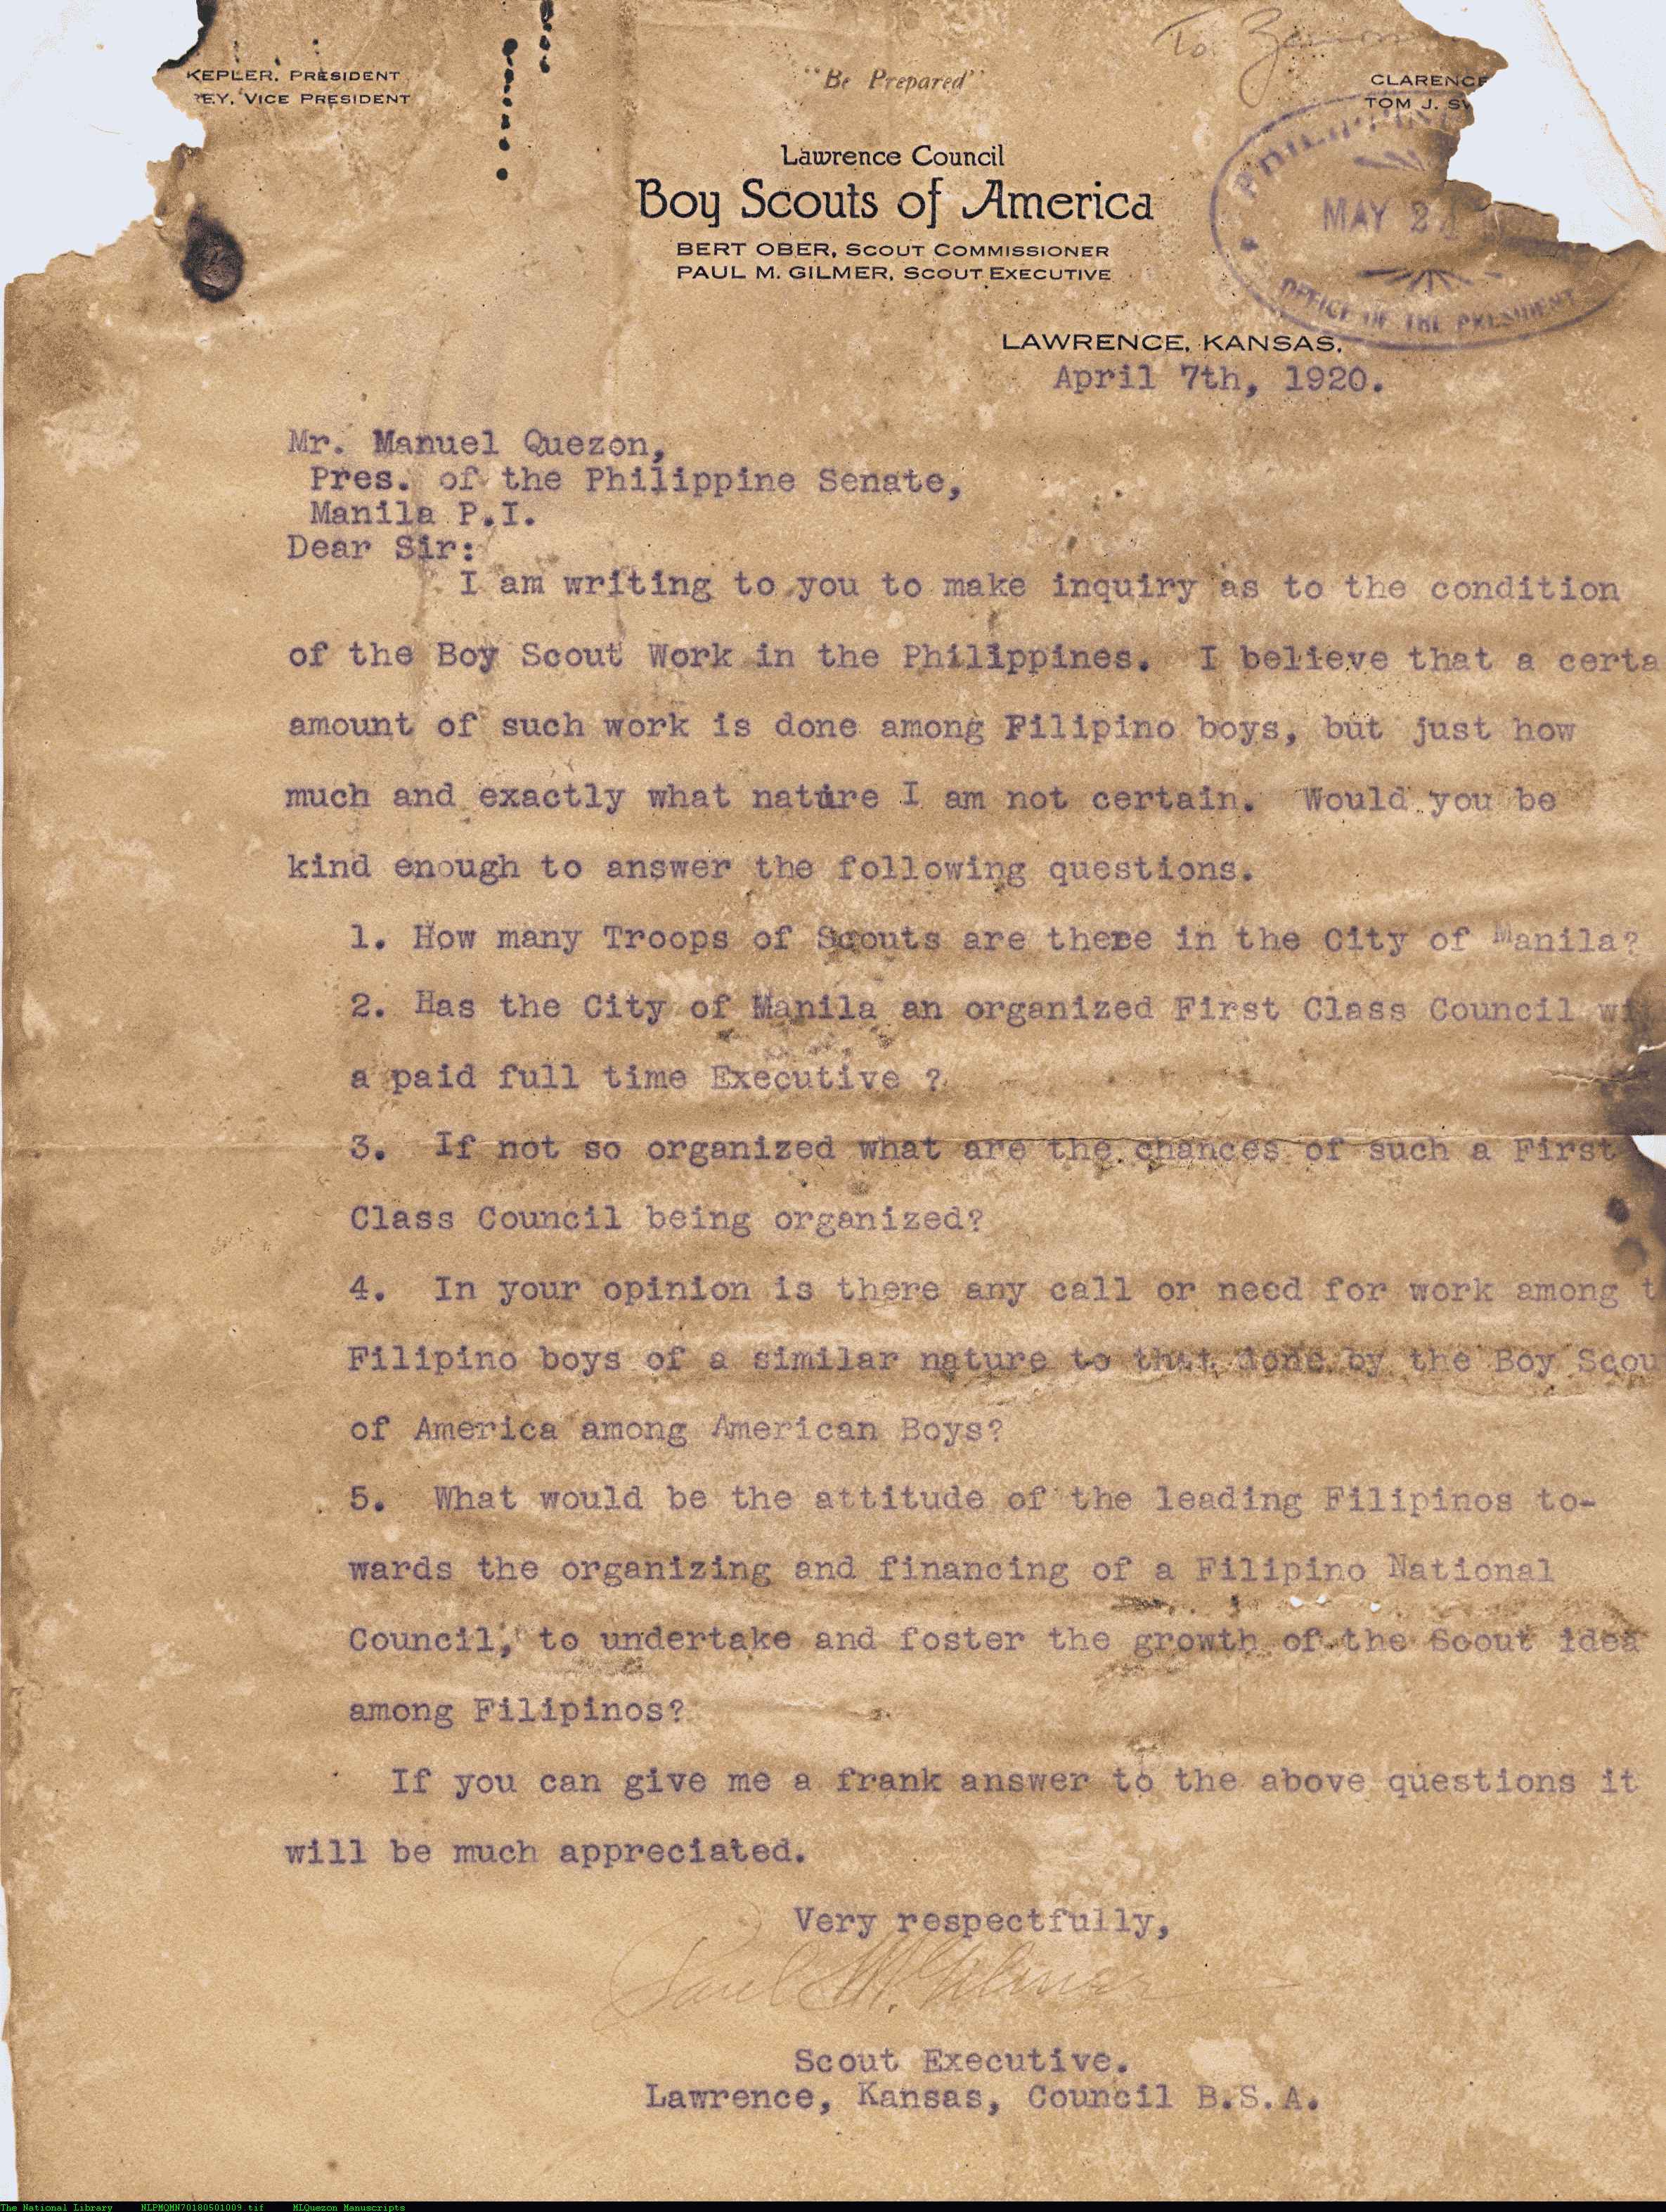 KEPLER, PRESIDENT
EY, VICE PRESIDENT
"Be Prepared"
To
CLARENCE
TOM J. SW
Lawrence Council
Boy Scouts of America
BERT OBER, SCOUT COMMISSIONER
PAUL M. GILMER, SCOUT EXECUTIVE
PHILIPPINE
MAY 24
OFFICE OF THE PRESIDENT
LAWRENCE, KANSAS,
April 7th, 1920.
Mr. Manuel Quezon,
Pres. of the Philippine Senate,
Manila P.I.
Dear Sir:
I am writing to you to make inquiry as to the condition
of the Boy Scout Work in the Philippines. I believe that a certa
amount of such work is done among Filipino boys, but just how
much and exactly what nature I am not certain. Would you be
kind enough to answer the following questions.
1. How many Troops of Scouts are there in the City of Manila?
2. Has the City of Manila an organized First Class Council wi
a paid full time Executive ?
3. If not so organized what are the chances of such a First
Class Council being organized?
4. In your opinion is there any call or need for work among t
Filipino boys of a similar nature to that done by the Boy Scou
of America among American Boys?
5. What would be the attitude of the leading Filipinos to-
wards the organizing and financing of a Filipino National
Council, to undertake and foster the growth of the Scout idea
among Filipinos?
If you can give me a frank answer to the above questions it
will be much appreciated.
Very respectfully,
Paul M. Gilmer
Scout Executive.
Lawrence, Kansas, Council B.S.A.
The National Library NLPMQMN70180501009.tif MLQuezon Manuscripts